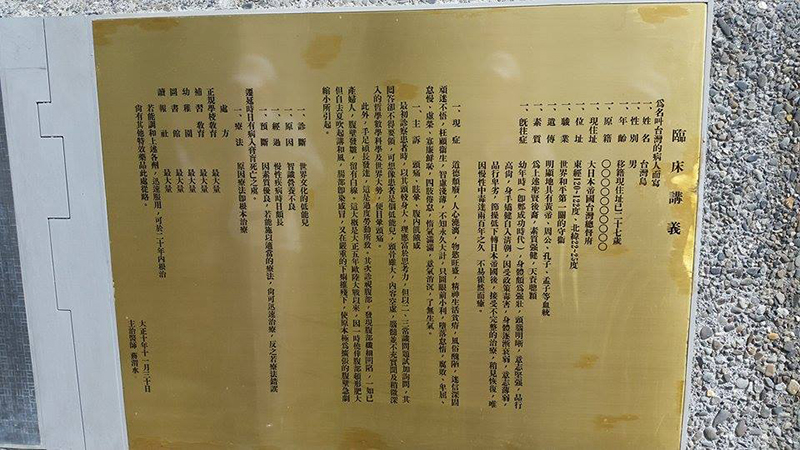 臨床講義
為名叫台灣的病人而寫
一、姓名 台灣島
一、性別 男
一、年齡 移籍現住址已二十七歲
一、原籍 〇〇〇〇〇〇〇〇〇
一、現住址 大日本帝國台灣總督府
一、位址 東經120~122度，北緯22~25度
一、職業 世界和平第一關的守衛
一、遺傳 明顯地具有黃帝、周公、孔子、孟子等血統
一、素質 為上述聖賢後裔，素質強健，天資聰穎
一、既往症 幼年時（即鄭成功時代），身體頗為強壯，頭腦明晰，意志堅強，品行
高尚，身手矯健自入清朝，因受政策毒害，身體逐漸衰弱，意志薄弱，
品行卑劣，節操低下轉日本帝國後，接受不完整的治療，稍見恢復，唯
因慢性中毒達兩百年之久，不易霍然而癒。
一、現症 道德頹廢，人心澆漓，物慾旺盛，精神生活貧瘠，風俗醜陋，迷信深固
頑迷不悟，枉顧衛生，智慮淺薄，不知永久大計，只圖眼前小利，墮落怠惰，腐敗、卑屈、
怠慢、虛榮、寡廉鮮恥、四肢倦怠，惰氣滿滿，意氣消沉，了無生氣。
一、主訴 頭痛、眩暈、腹內飢餓感
最初診察患者時，以其頭較身大，理應富於思考力，但以二、三常識問題試加詢問，其
回答卻不得要領，可想像患者是個低能兒，頭骨雖大，內容空虛，腦髓並不充實聞及稍微深
入的哲學數學科學及世界大勢，便目暈頭痛。
此外，手足碩長發達，這是過度勞動所致。其次診視腹部，發現腹部纖細凹陷，一如已
產婦人，腹壁發皺，留有白線。這大概是大正五年歐陸大戰以來，因一時僥倖腹部頓形肥大
但自去夏吹起講和風，腸部即染感冒，又在嚴重的下痢摧殘下，使原本極為擴張的腹壁急劇
縮小所引起。
一、診斷 世界文化的低能兒
一、原因 智識營養不良
一、經過 慢性疾病時日頗長
一、預斷 因素質優良，若能施以適當的療法，尚可迅速治療，反之若療法錯誤
遷延時日有病入膏肓死亡之虞。
一、療法 原因療法即根本治療
處方
正規學校教育 最大量
補習教育 最大量
幼稚園 最大量
圖書館 最大量
讀報社 最大量
若能調和上述各劑，迅速服用，可於二十年內根治
尚有其他特效藥品此處從略。
大正十年十一月三十日
主治醫師 蔣渭水